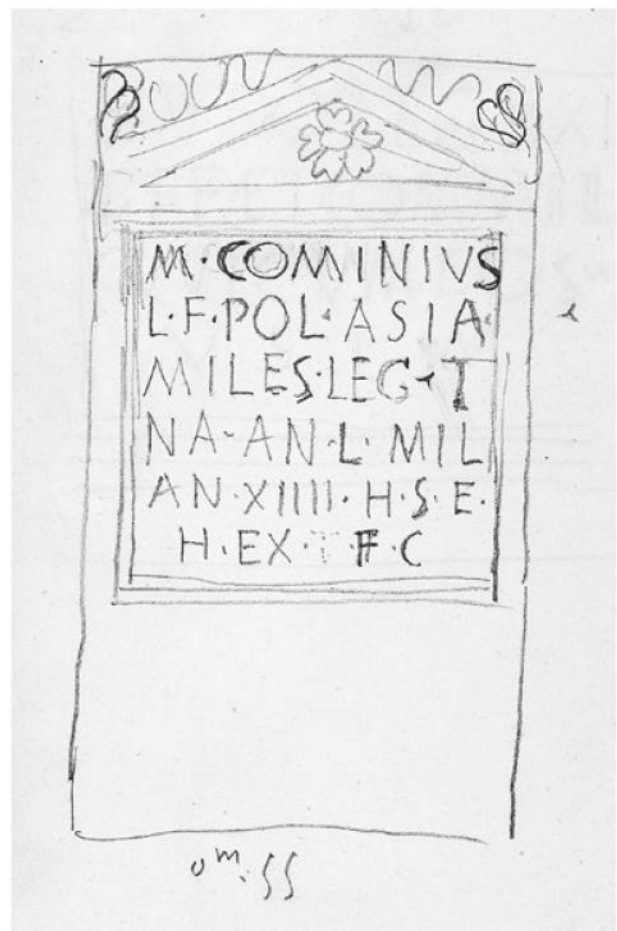 M·COMINIVS
L·F·POL·ASIA
MILES·LEG·T
NA·AN·L·MIL
AN·XIIII·H·S·E·
H·EX·T·F·C